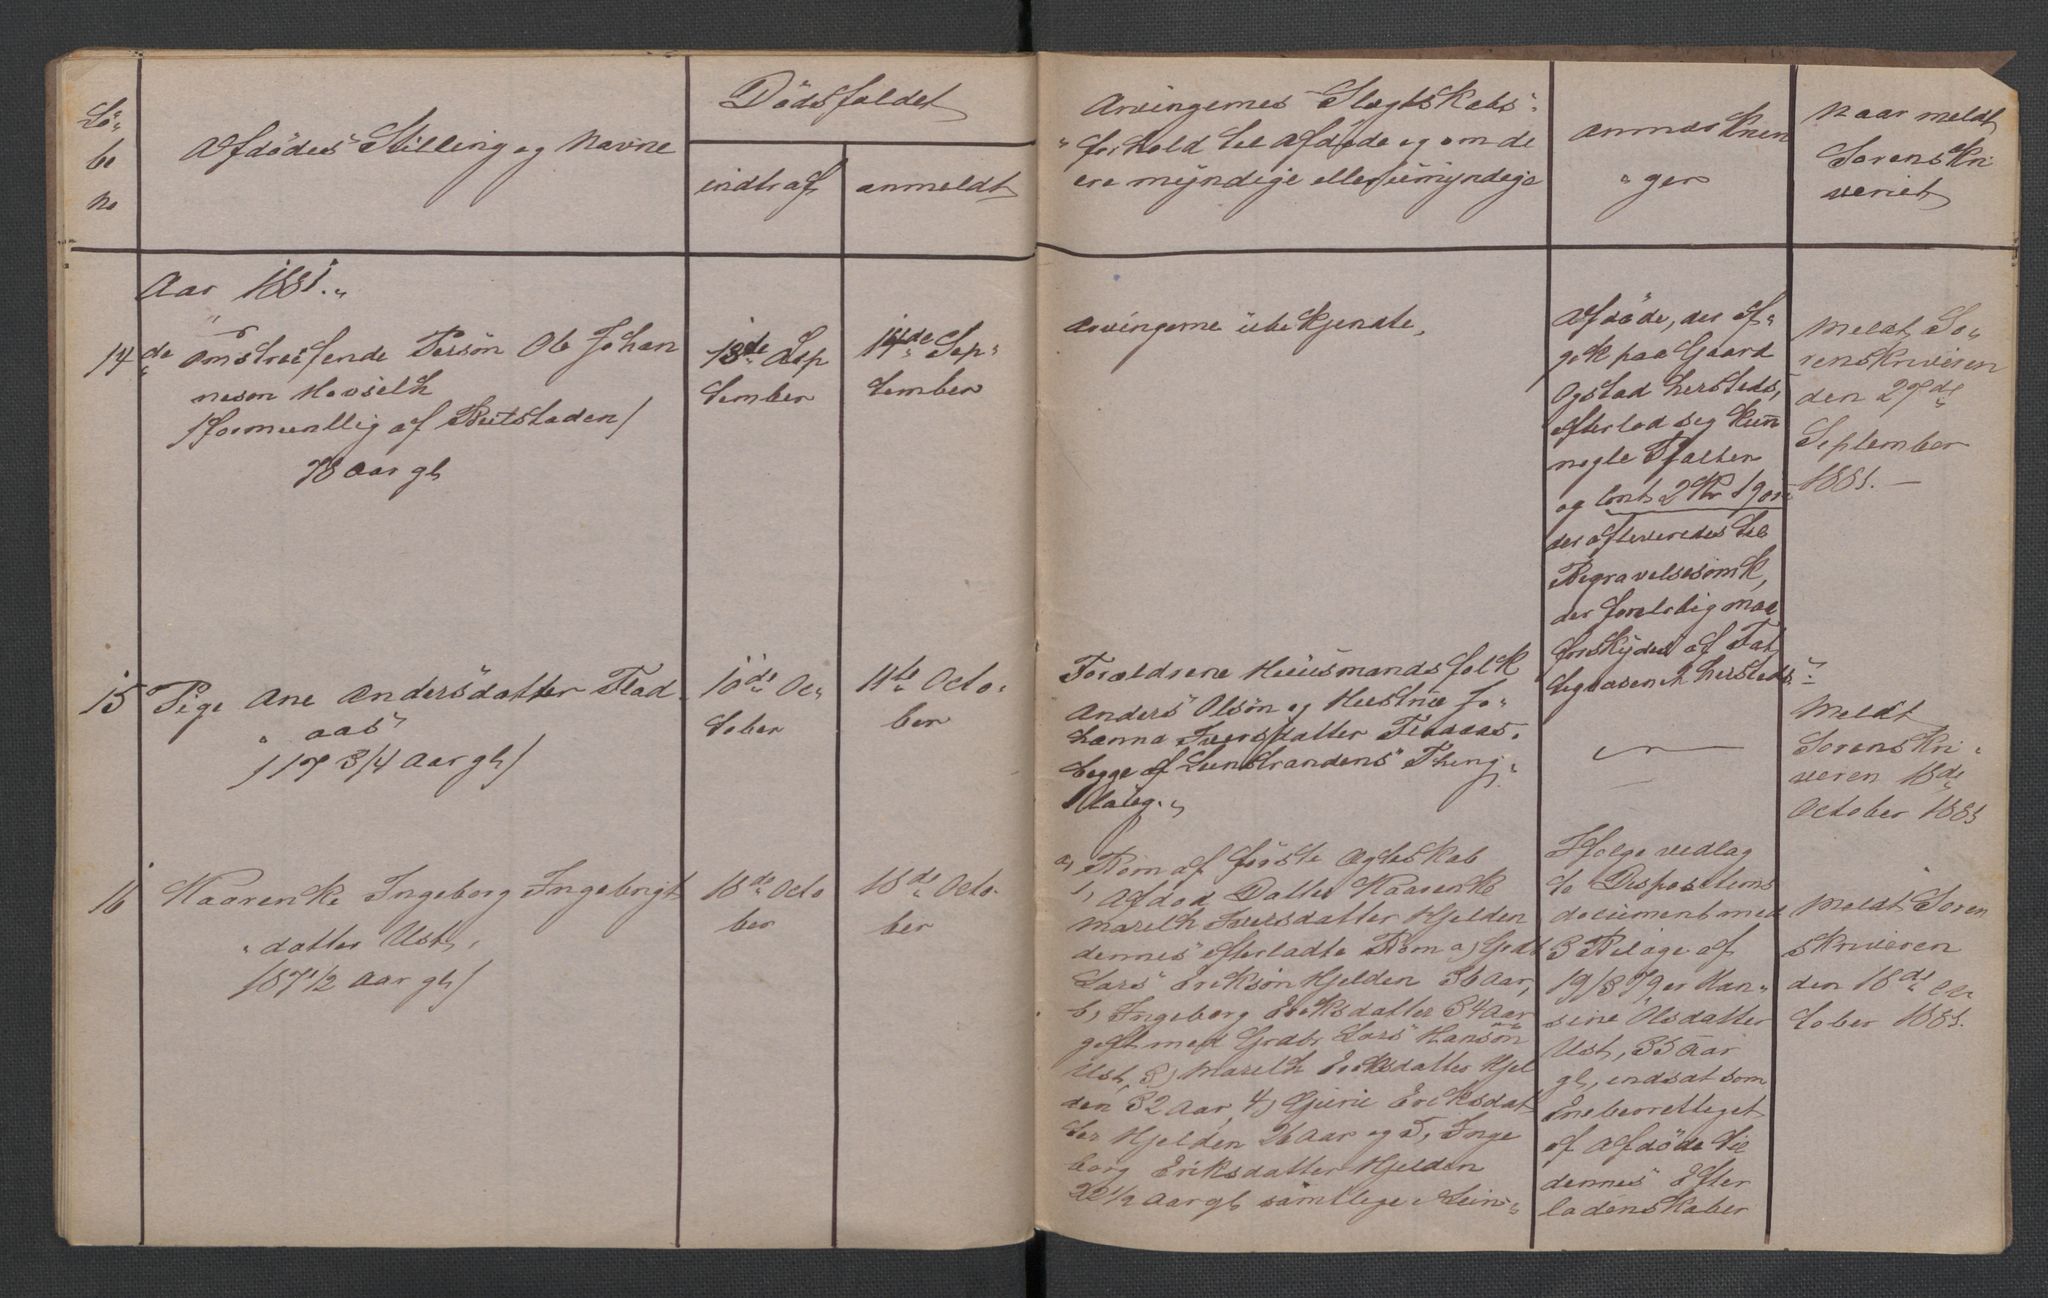 Lö-
be
No
Afdödes Stilling og Navne
Dödsfaldet
indtraf
anmeldt
Arvingernes Slægtskabs-
forhold til Afdöde og om de
ere myndige eller umyndige
Anmærknin
ger
Naar meldt
Sorenskri
veriet
Aar 1881.
14de Omstreifende Person Ole Johan
nesen Hovseth
/formentlig af Beitstaden/
78 Aar gl
13de Sep
tember
14de Sep
tember
Arvingerne ubekjendte,
Afdöde, der af-
gik paa Gaard
Ogstad Hersteds,
efterlod sig kun
nogle Filler
og Cont. 2 Kr 19 öre
der afleveredes til
Begravelsesomk,
der forelöbig maa
forskydes af Fat
tigvæsen i Hersteds
Meldt So-
renskriveren
den 27de
September
1881.
15 Pige Ane Andersdatter Flad-
aas
/17 3/4 Aar gl/
10de Oc-
tober
11te Octo-
ber
Forældrene Huusmandsfolk
Anders Olsön og Hustrue Jo-
hanna Iversdatter Fladaas,
begge af Leinstrandens Thing-
laug.
Meldt
Sorenskri-
veren 18de
October 1881
16 Kaarenke Ingeborg Ingebrigts
datter Ust,
/87 1/2 Aar gl/
18de Octo
ber
18de Octo-
ber
a, Börn af förste Ægteskab
1, Afdöd Datter Kaarenke
Mareth Iversdatter Hjelden
dennes efterladte Börn a) Grdb
Lars Eriksön Hjelden 36 Aar,
b, Ingeborg Eriksdatter 34 Aar
gift med Grdbr Lars Hansön
Ust, 3) Mareth Eriksdatter Hjel
den 32 Aar, 4) Gurie Eriksdat
ter Hjelden 26 Aar og 5, Inge
borg Eriksdatter Hjelden
22 1/2 Aar gl samtlige i Lein-
Ifölge vedlag
te Dispositions
document med
3 Bilage af
19/3 79 er Han-
sine Olsdatter
Ust, 35 Aar
gl, indsat som
Eneberettiget
af Afdöde til
dennes Efter
ladenskaber
Meldt Soren
skriveren
den 18de Oc
tober 1881.